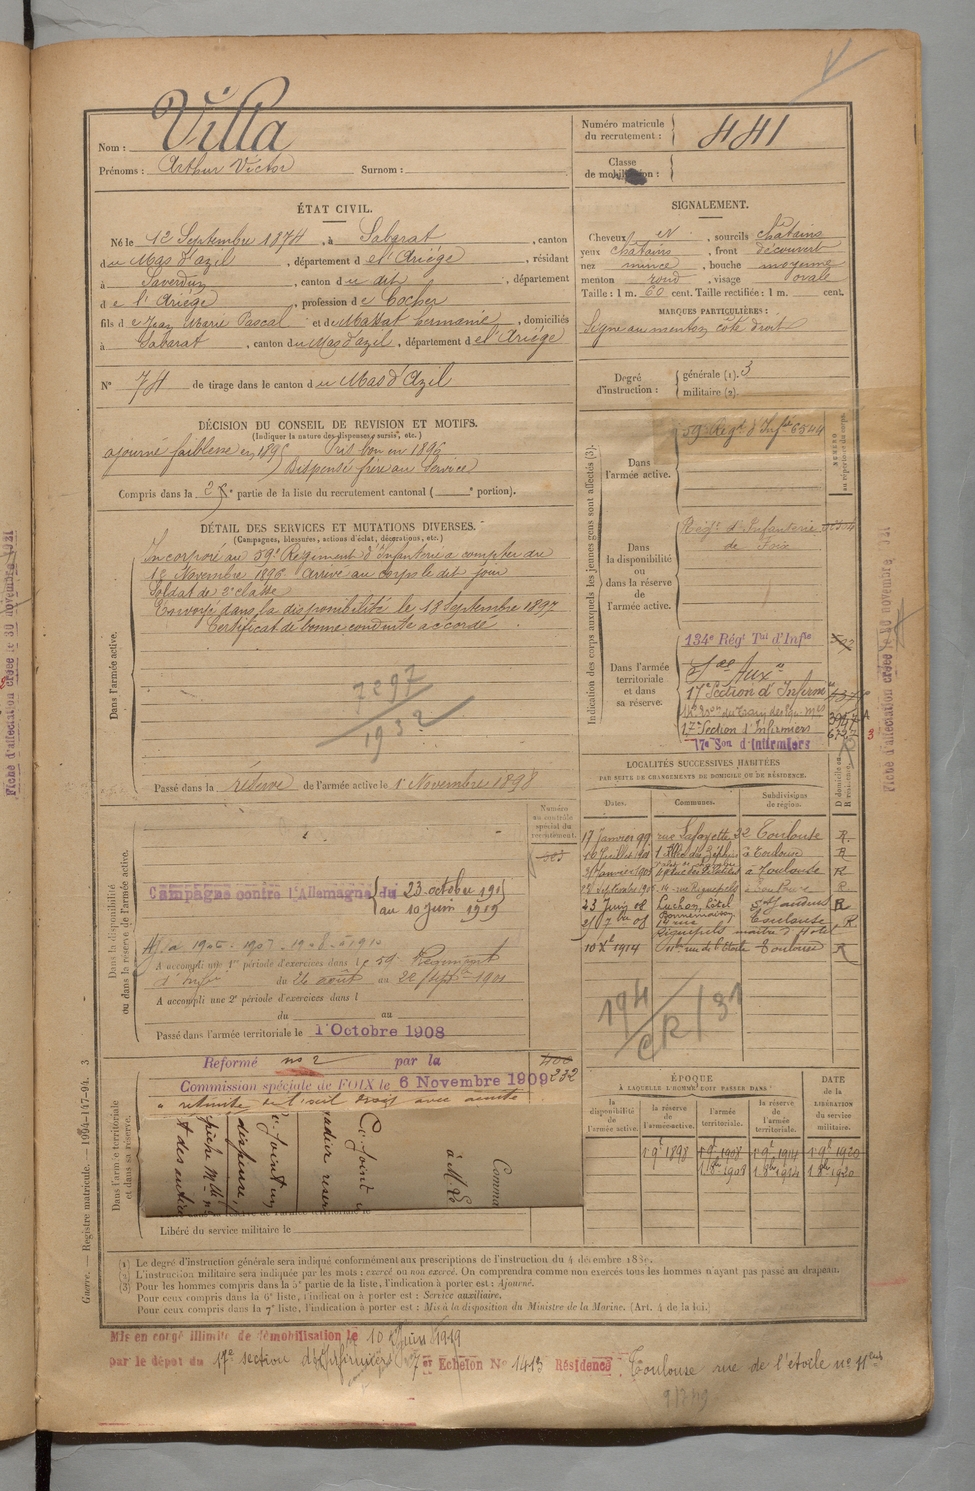 Nom : Villa
Prénoms : Arthur Victor Surnom :
Numéro matricule du recrutement : 441
Classe de mobilisation :
ÉTAT CIVIL.
Né le 12 Septembre 1874, à Sabarat, canton
du Mas d'azil, département de l'Ariège, résidant
à Saverdun, canton du dit, département
de l'Ariège, profession de Cocher
fils de Jean Marie Pascal et de Massat Germanie, domiciliés
à Sabarat, canton du Mas d'azil, département de l'Ariège
N° 74 de tirage dans le canton du Mas d'Azil
SIGNALEMENT.
Cheveux et, sourcils châtains
yeux châtains, front découvert
nez mince, bouche moyenne
menton rond, visage ovale
Taille : 1 m. 60 cent. Taille rectifiée : 1 m. cent.
MARQUES PARTICULIÈRES :
Signe au menton côté droit
Degré d'instruction : générale (1). 3
militaire (2).
DÉCISION DU CONSEIL DE REVISION ET MOTIFS.
(Indiquer la nature des dispenses, sursis, etc.)
ajourné faiblesse en 1895 Pris bon en 1896
Dispensé frère au Service
Compris dans la 2e partie de la liste du recrutement cantonal ( e portion).
DÉTAIL DES SERVICES ET MUTATIONS DIVERSES.
(Campagnes, blessures, actions d'éclat, décorations, etc.)
Dans l'armée active.
Incorporé au 59e Régiment d'Infanterie a compter du
13 Novembre 1896. Arrivé au corps le dit jour
Soldat de 2e classe
Envoyé dans la disponibilité le 18 Septembre 1897
Certificat de bonne conduite accordé.
7297
1932
Passé dans la réserve de l'armée active le 1er Novembre 1898
Indication des corps auxquels les jeunes gens sont affectés (3).
NUMÉRO au répertoire du corps.
Dans l'armée active.
59e Régt d'Infie 6544
Dans la disponibilité ou dans la réserve de l'armée active.
Régt d'Infanterie
de Foix
Dans l'armée territoriale et dans sa réserve.
134e Régt Tal d'Infie
Sces Auxres
17e Section d'Infirmiers
17e Section d'Infirmiers
17e Son d'Infirmiers
LOCALITÉS SUCCESSIVES HABITÉES
PAR SUITE DE CHANGEMENTS DE DOMICILE OU DE RÉSIDENCE.
Dates. Communes. Subdivisions de région. D domicile ou R résidence.
17 Janvier 99 rue Lafayette 32 Toulouse R.
à Toulouse R
à Toulouse R
23 Juin 08 Luchon, hôtel St Gaudens R
Toulouse R
maître d'hôtel
10 1914 rue de l'Etoile Toulouse R
194
CR/31
Dans la disponibilité ou dans la réserve de l'armée active.
Numéro au contrôle spécial du recrutement.
Campagne contre l'Allemagne du 23 octobre 1915
au 10 juin 1919
A accompli une 1re période d'exercices dans le 59e Régiment
d'Infie du 26 août au 22 Septbre 1901
A accompli une 2e période d'exercices dans l
du au
Passé dans l'armée territoriale le 1er Octobre 1908
Dans l'armée territoriale et dans sa réserve.
Reformé no 2 par la
Commission spéciale de FOIX le 6 Novembre 1909
232
Libéré du service militaire le
ÉPOQUE
À LAQUELLE L'HOMME DOIT PASSER DANS
DATE de la LIBÉRATION du service militaire.
la disponibilité de l'armée active. la réserve de l'armée active. l'armée territoriale. la réserve de l'armée territoriale.
1 9e 1898 1 9e 1908 1 9e 1914 1 9e 1920
1 8bre 1908 1 8bre 1914 1 8bre 1920
(1) Le degré d'instruction générale sera indiqué conformément aux prescriptions de l'instruction du 4 décembre 1889.
(2) L'instruction militaire sera indiquée par les mots : exercé ou non exercé. On comprendra comme non exercés tous les hommes n'ayant pas passé au drapeau.
(3) Pour les hommes compris dans la 5e partie de la liste, l'indication à porter est : Ajourné.
Pour ceux compris dans la 6e liste, l'indication à porter est : Service auxiliaire.
Pour ceux compris dans la 7e liste, l'indication à porter est : Mis à la disposition du Ministre de la Marine. (Art. 4 de la loi.)
Guerre. — Registre matricule. — 1994-147-94. 3
Mis en congé illimité de démobilisation le 10 Juin 1919
par le dépôt du 17e section d'Infirmiers 7er Echelon N° 1413 Résidence, Toulouse rue de l'étoile no 11
Fiche d'affectation créée le 30 novembre 1931
Fiche d'affectation créée le 30 novembre 1931